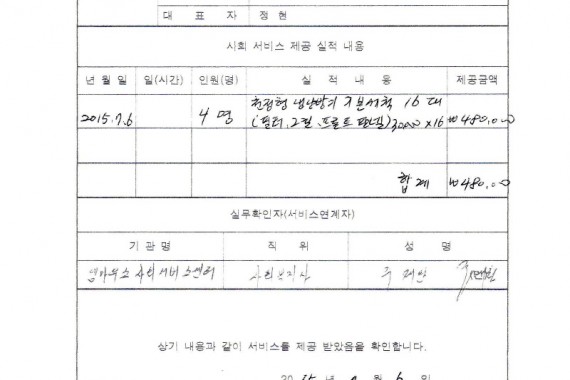 대 표 자 정 현
사회 서비스 제공 실적 내용
년 월 일 일(시간) 인원(명) 실 적 내 용 제공금액
2015.7.6 4명 천정형 냉난방기 기본세척 16대
(필터, 그릴, 프론트 판넬) 30000 x 16 ₩480,000
합 계 ₩480,000
실무확인자(서비스연계자)
기 관 명 직 위 성 명
사회서비스센터 사회복지사
상기 내용과 같이 서비스를 제공 받았음을 확인합니다.
2015 년 월 6 일